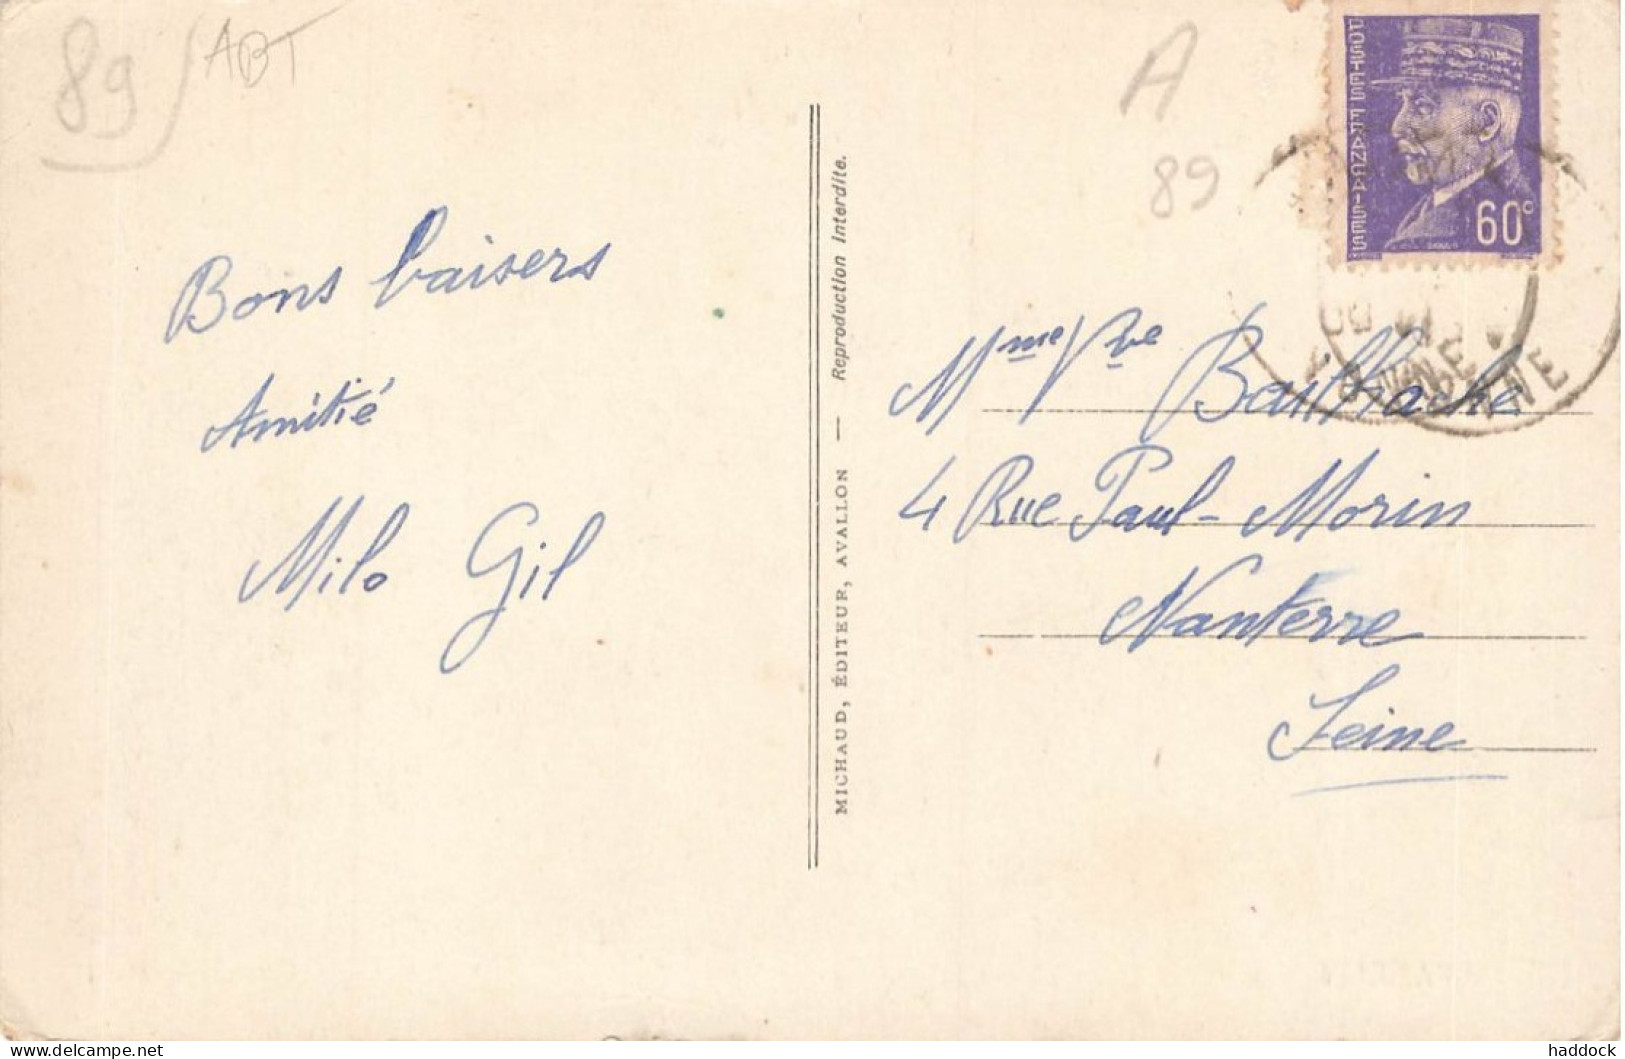 89
ABT
A
89
POSTES FRANÇAISES
60c
Bons baisers
Amitié
Milo Gil
MICHAUD, ÉDITEUR, AVALLON — Reproduction Interdite.
Mme Vve Bailhache
4 Rue Paul-Morin
Nanterre
Seine
YONNE
YONNE
delcampe.net
haddock